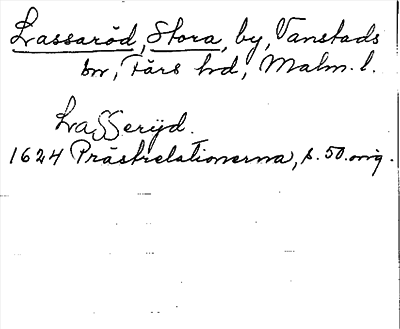 Lassaröd, Stora, by, Vanstads
sn, Färs hd, Malm. l.
Lasseryd.
1624 Prästrelationerna, s. 50. orig.